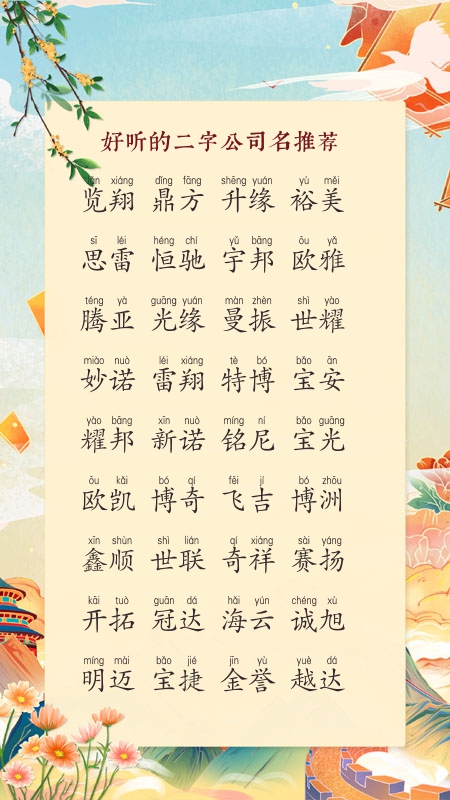 好听的二字公司名推荐
lǎn xiáng dǐng fāng shēng yuán yù měi
览翔 鼎方 升缘 裕美
sī léi héng chí yǔ bāng ōu yǎ
思雷 恒驰 宇邦 欧雅
téng yà guāng yuán màn zhèn shì yào
腾亚 光缘 曼振 世耀
miào nuò léi xiáng tè bó bǎo ān
妙诺 雷翔 特博 宝安
yào bāng xīn nuò míng ní bǎo guāng
耀邦 新诺 铭尼 宝光
ōu kǎi bó qí fēi jí bó zhōu
欧凯 博奇 飞吉 博洲
xīn shùn shì lián qí xiáng sài yáng
鑫顺 世联 奇祥 赛扬
kāi tuò guān dá hǎi yún chéng xù
开拓 冠达 海云 诚旭
míng mài bǎo jié jīn yù yuè dá
明迈 宝捷 金誉 越达